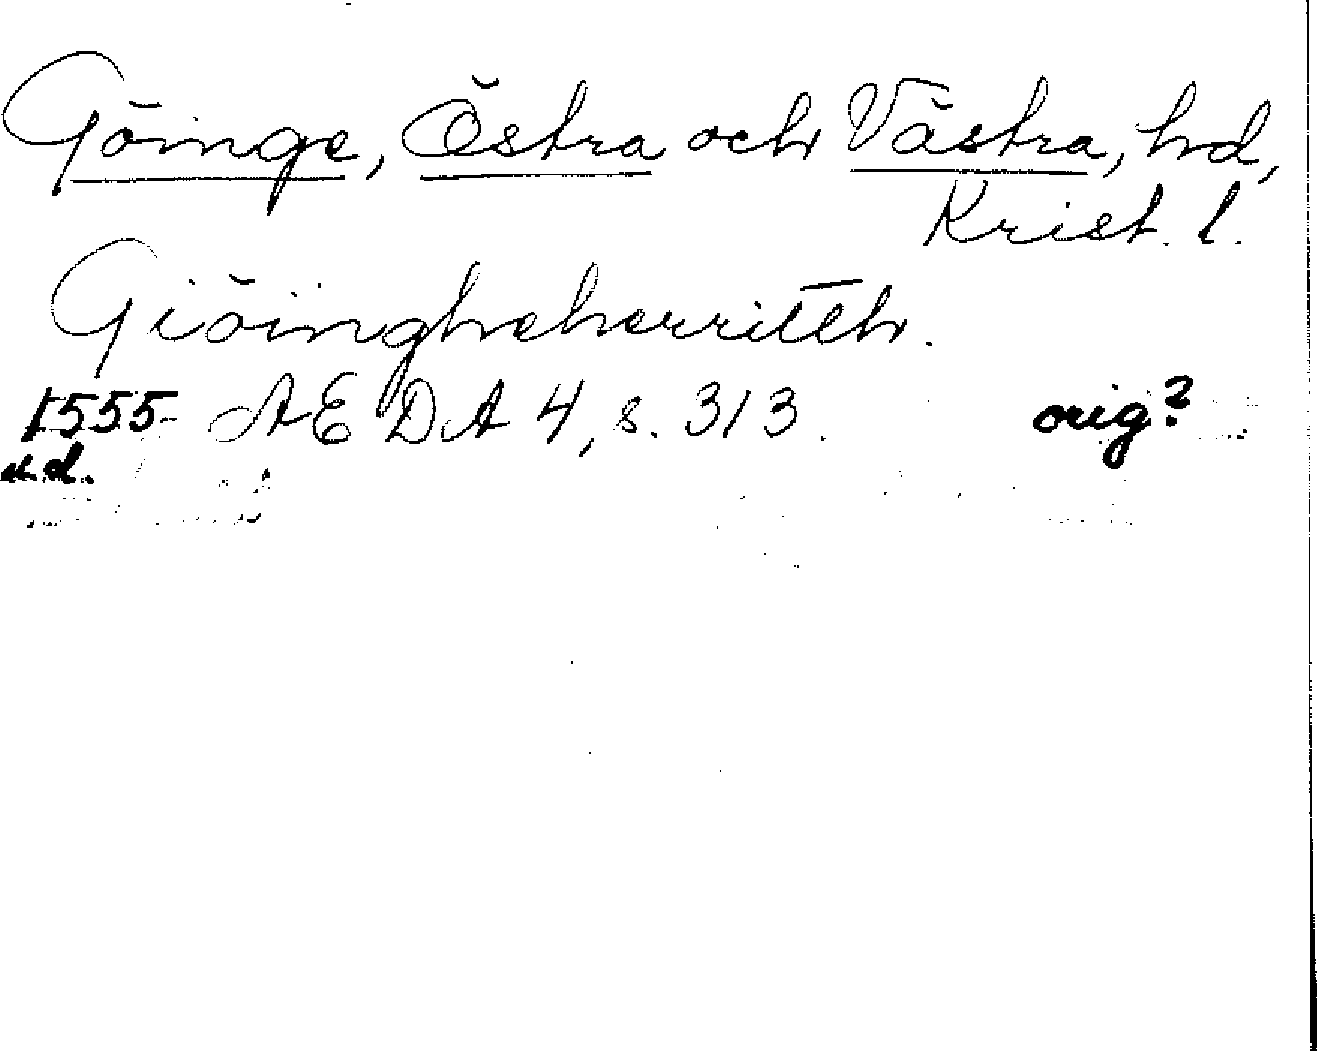 Göinge, Östra och Västra, hd,
Krist. l.
Giöingheherritth.
1555 AEDA 4, s. 313. orig?